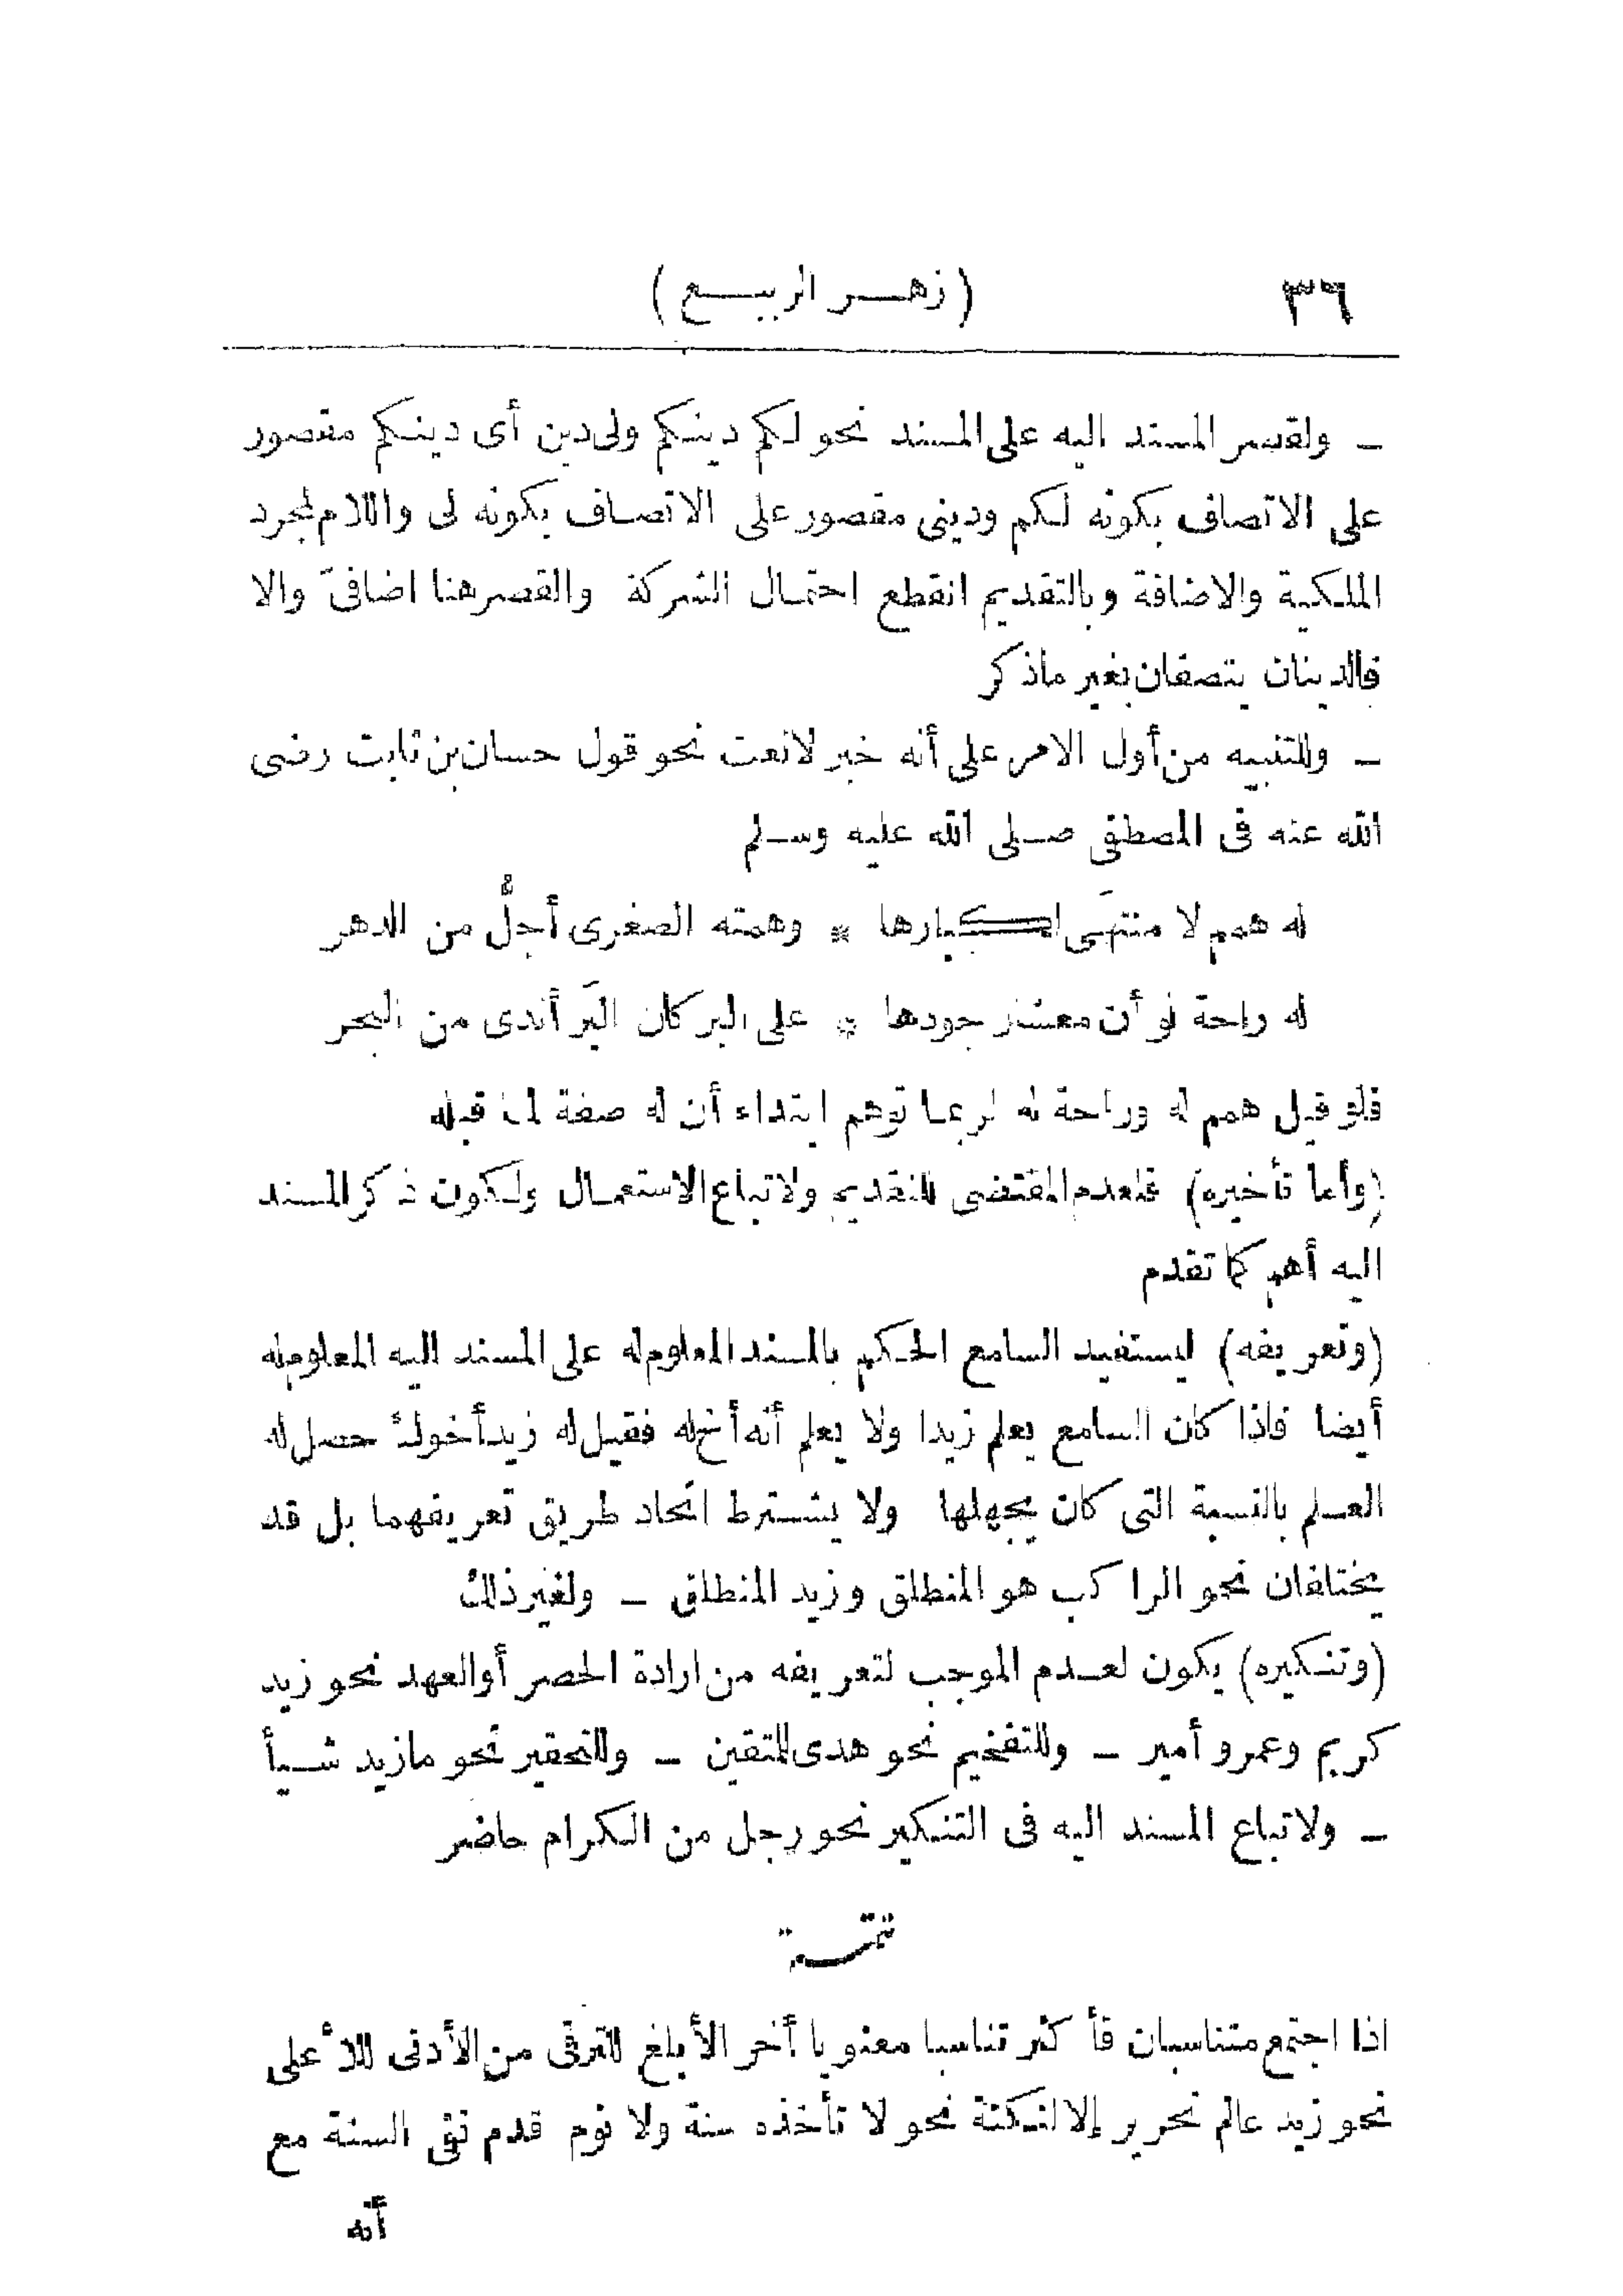 ٣٦
(زهـر الربيـع)
ـ ولقصر المسند اليه على المسند نحو لكم دينكم ولى دين أى دينكم مقصور
على الاتصاف بكونه لكم ودينى مقصور على الاتصاف بكونه لى واللام لمجرد
الملكية والاضافة وبالتقديم انقطع احتمال الشركة والقصر هنا اضافىّ والا
فالدينان يتصفان بغير ماذكر
ـ وللتنبيه من أول الامر على أنه خبر لانعت نحو قول حسان بن ثابت رضى
الله عنه فى المصطفى صلى الله عليه وسلم
له همم لا منتهَى لكبارها * وهمته الصغرى أجلُّ من الدهر
له راحة لو أن معشار جودها * على البر كان البَر أندى من البحر
فلو قيل همم له وراحة له لربما توهم ابتداء أن له صفة لما قبله
(وأما تأخيره) فلعدم المقتضى للتقديم ولاتباع الاستعمال ولكون ذكر المسند
اليه أهم كما تقدم
(وتعريفه) ليستفيد السامع الحكم بالمسند المعلوم له على المسند اليه المعلوم له
أيضا فاذا كان السامع يعلم زيدا ولا يعلم أنه أخ له فقيل له زيد أخوك حصل له
العلم بالنسبة التى كان يجهلها ولا يشترط اتحاد طريق تعريفهما بل قد
يختلفان نحو الراكب هو المنطلق وزيد المنطلق ـ ولغير ذلك
(وتنكيره) يكون لعدم الموجب لتعريفه من ارادة الحصر أو العهد نحو زيد
كريم وعمرو أمير ـ وللتفخيم نحو هدى للمتقين ـ وللتحقير نحو مازيد شيأ
ـ ولاتباع المسند اليه فى التنكير نحو رجل من الكرام حاضر
تتمة
اذا اجتمع متناسبان فأكثر تناسبا معنويا أخر الأبلغ للترقى من الأدنى للأعلى
نحو زيد عالم نحرير إلا لنكتة نحو لا تأخذه سنة ولا نوم قدم نفى السنة مع
أنه